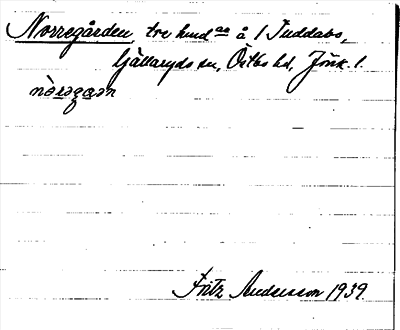 Norregården, tre hmd aa å 1 Tuddabo,
Gällaryds sn, Östbo hd, Jönk. l.
Fritz Andersson 1939.